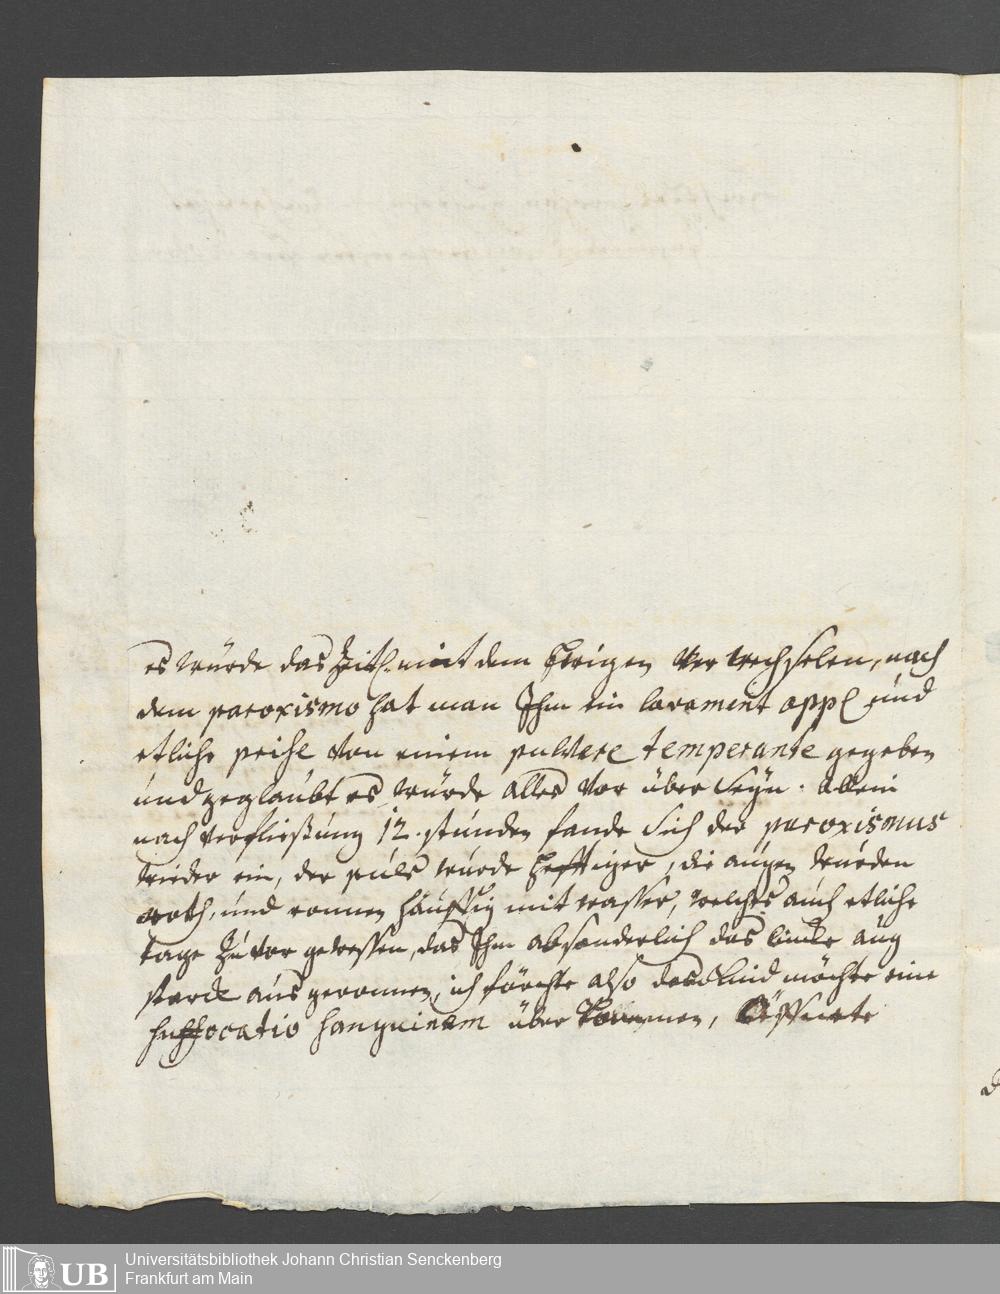 es würde das Zeitl. mit dem Ewigen verwechslen, nach
dem paroxismo hat man Ihm ein lavament appl und
etliche preise von einem pulvere temperante gegeben
und geglaubt es würde alles vor über seyn. Allein
nach verfließung 12. stunden fande sich der paroxismus
wieder ein, der puls wurde hefftiger, die augen wurden
roth, und ronnen häuffig mit wasser, welches auch etliche
tage zuvor gewessen, das Ihm absonderlich das lincke aug
starck ausgeronnen, ich förchte also das Kind möchte eine
suffocatio sanguinem über kommen, öffnete
Universitätsbibliothek Johann Christian Senckenberg
Frankfurt am Main
UB